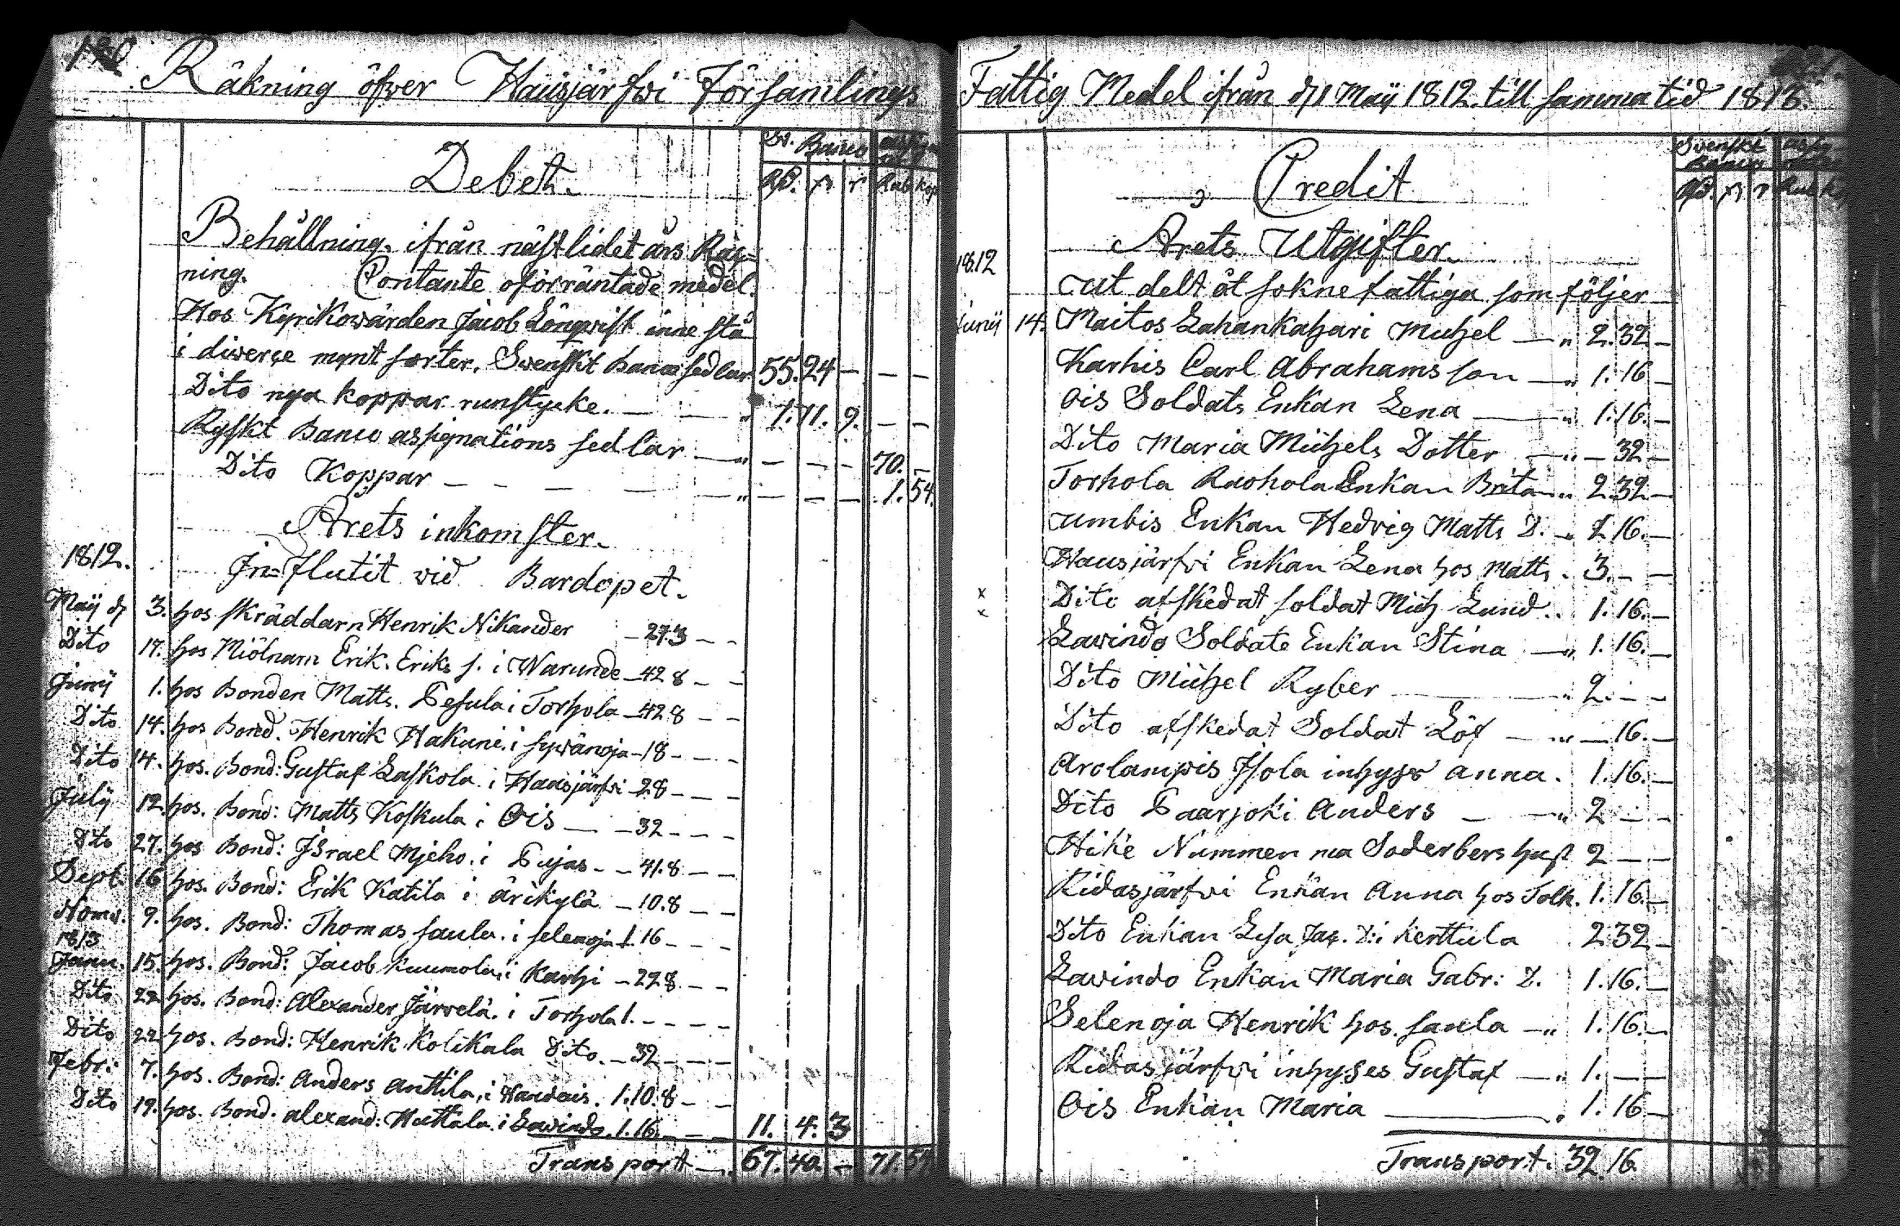 180
Räkning öfver Hausjärfwi Församlings
Debet.
Sv. Banco
Rd. ß r Rub kop
Behållning ifrån näst lidet års Räk=
ning. Contante oförräntade medel.
Hos Kyrkowärden Jacob Lönqwist inne stå
i diverse mynt sorter. Svenskt Banco sedlar 55. 24 — — —
Dito nya koppar runstycke. — — " 1. 11. 9. — —
Ryskt Banco assignations sedlar — " — — — 70. —
Dito Koppar — — — — — " — — — 1. 54.
Årets inkomster.
1812. In=flutit vid Bardopet.
Maij d 3. hos skräddarn Henrik Nikander — 27.3 — —
Dito 17. hos Mjölnarn Erik. Eriks s. i Warunde — 42 8 — —
Junij 1. hos Bonden Matts. Pesula i Torhola — 42.8 — —
Dito 14. hos Bond. Henrik Hakuni. i sywänoja — 18 — — —
Dito 14. hos. Bond: Gustaf Laskola. i Hausjärfvi — 28 — — —
July 12. hos. Bond: Matts Koskula i Ois — — 32 — — —
Dito 27. hos Bond: Israel Mjeho. i Pujas — — 41.8 — —
Sept. 16 hos. Bond: Erik Katila i ärikylä — 10.8 — —
Nomv. 9. hos. Bond: Thomas saula. i selenoja 1. 16 — — —
1813
Janu. 15. hos. Bond: Jacob kuumola. i Karhi — 22 8. — —
Dito 22. hos. Bond: Alexander Järvelä. i Torhola 1. — — — —
Dito 22. hos. Bond: Henrik Kolikala Dito. — 32 — — —
Febr: 7. hos. Bond: Anders Anttila, i 1.10.8 — —
Dito 19. hos. Bond. alexand: Huttala. i Lawindo. 1. 16. — — — 11. 4. 3
Transport — 67. 40. — 71. 54
Fattig Medel ifrån d 1 Maij 1812. till samma tid 1813.
Credit
Svenskt Banco
Rd. ß r Rub k
Årets Utgifter.
1812
ut delt åt sokne fattiga som följer
Junij 14. Maitos Lahankatzari Michel — " 2. 32 —
Karhis Carl Abrahams son — " 1. 16 —
Ois Soldats Enkan Lena — " 1. 16. —
Dito Maria Michels Dotter — " — 32 —
Torhola Raohola Enkan Brita — " 2 32 —
umbis Enkan Hedvig Matts D. — " 1 16. —
Hausjärfvi Enkan Lena hos Matts. . 3. — —
Dito afskedat soldat Mich Lund. . 1. 16. —
Lawindo Soldats Enkan Stina — " 1. 16. —
Dito Michel Ryber — " 2. — —
Dito afskedat Soldat Löf — " — 16. —
Arolampis Isola inhyses anna. 1. 16. —
Dito Paarjoki Anders — " 2 — —
Hike Nummen ma Soderbers hust 2 — —
Ridasjärfvi Enkan Anna hos Tolk. 1. 16. —
Dito Enkan Lisa Jac. D: i kerttula 2 32 —
Lavindo Enkan Maria Gabr: D. 1. 16. —
Selenoja Henrik hos. saula — " 1. 16. —
Ridasjärfvi inhyses Gustaf — " 1. — —
Ois Enkan Maria — . 1. 16 —
Transport. 32. 16.